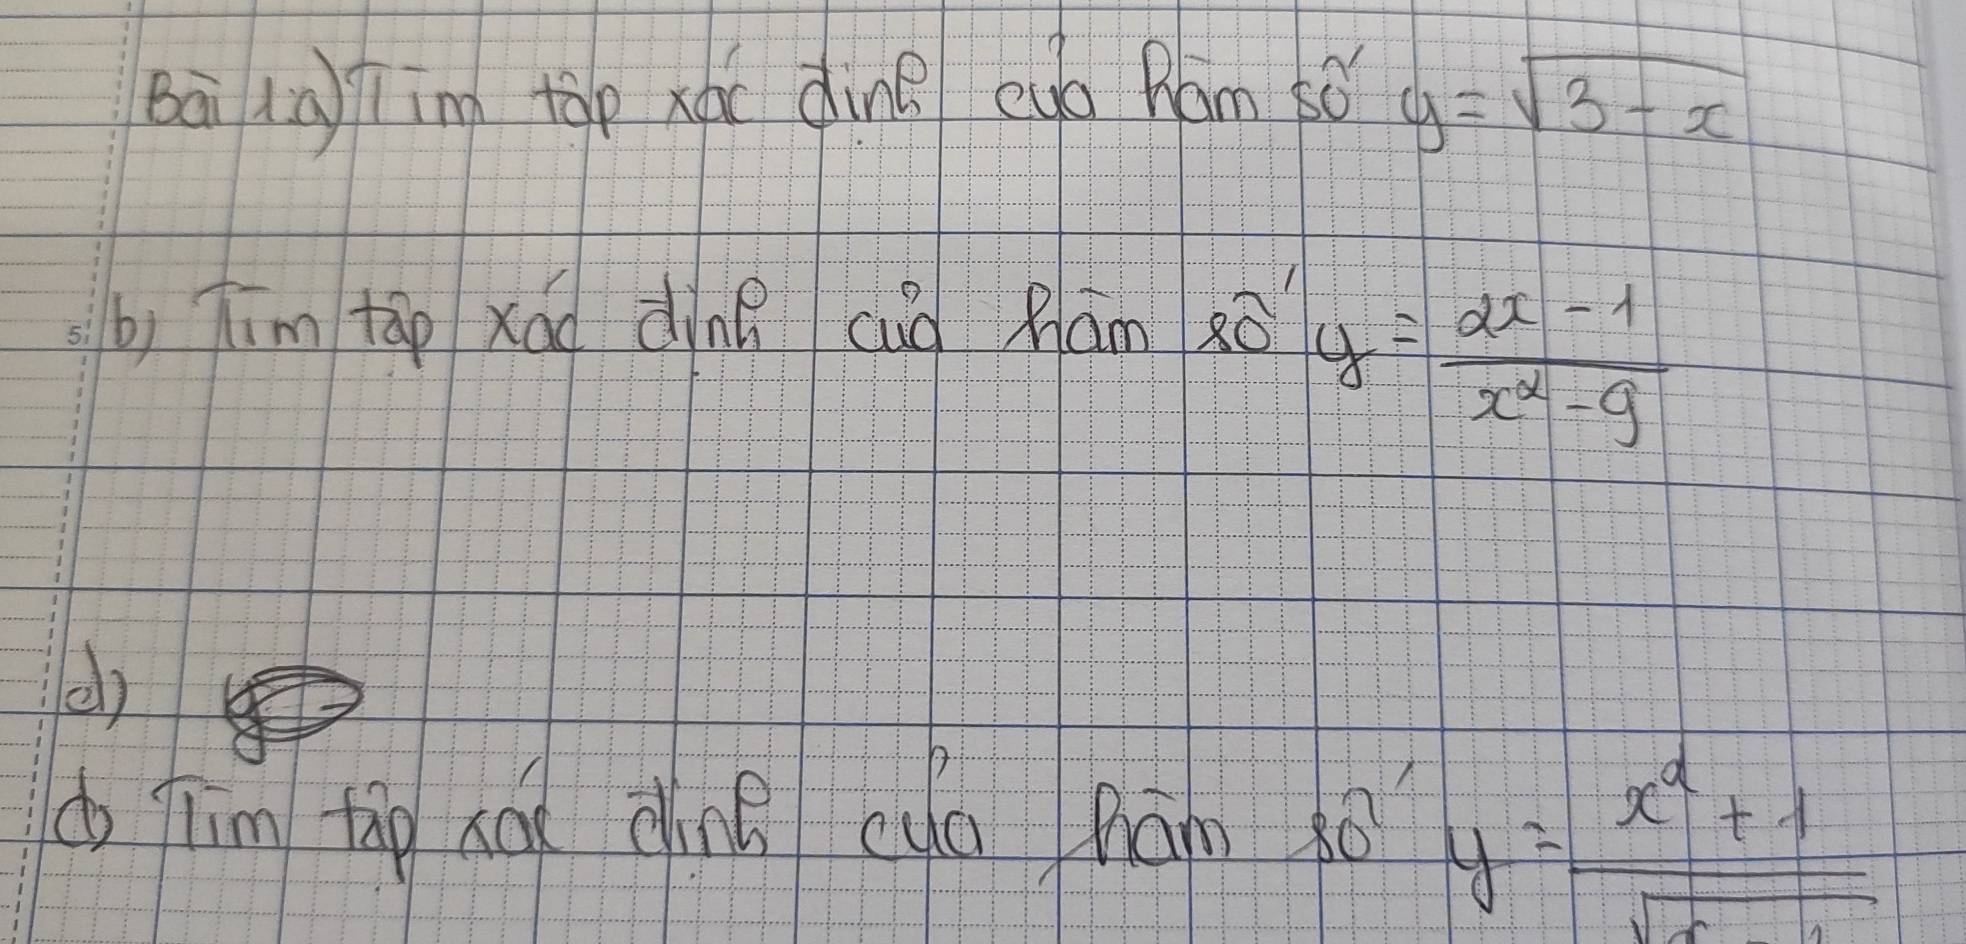 Bài 1.a) Tìm tập xác định của hàm số y = √3 - x
b) Tìm tập xác định của hàm số y = 2x - 1 / x² - 9
d)
c) Tìm tập xác định của hàm số y = x² + 1 / √